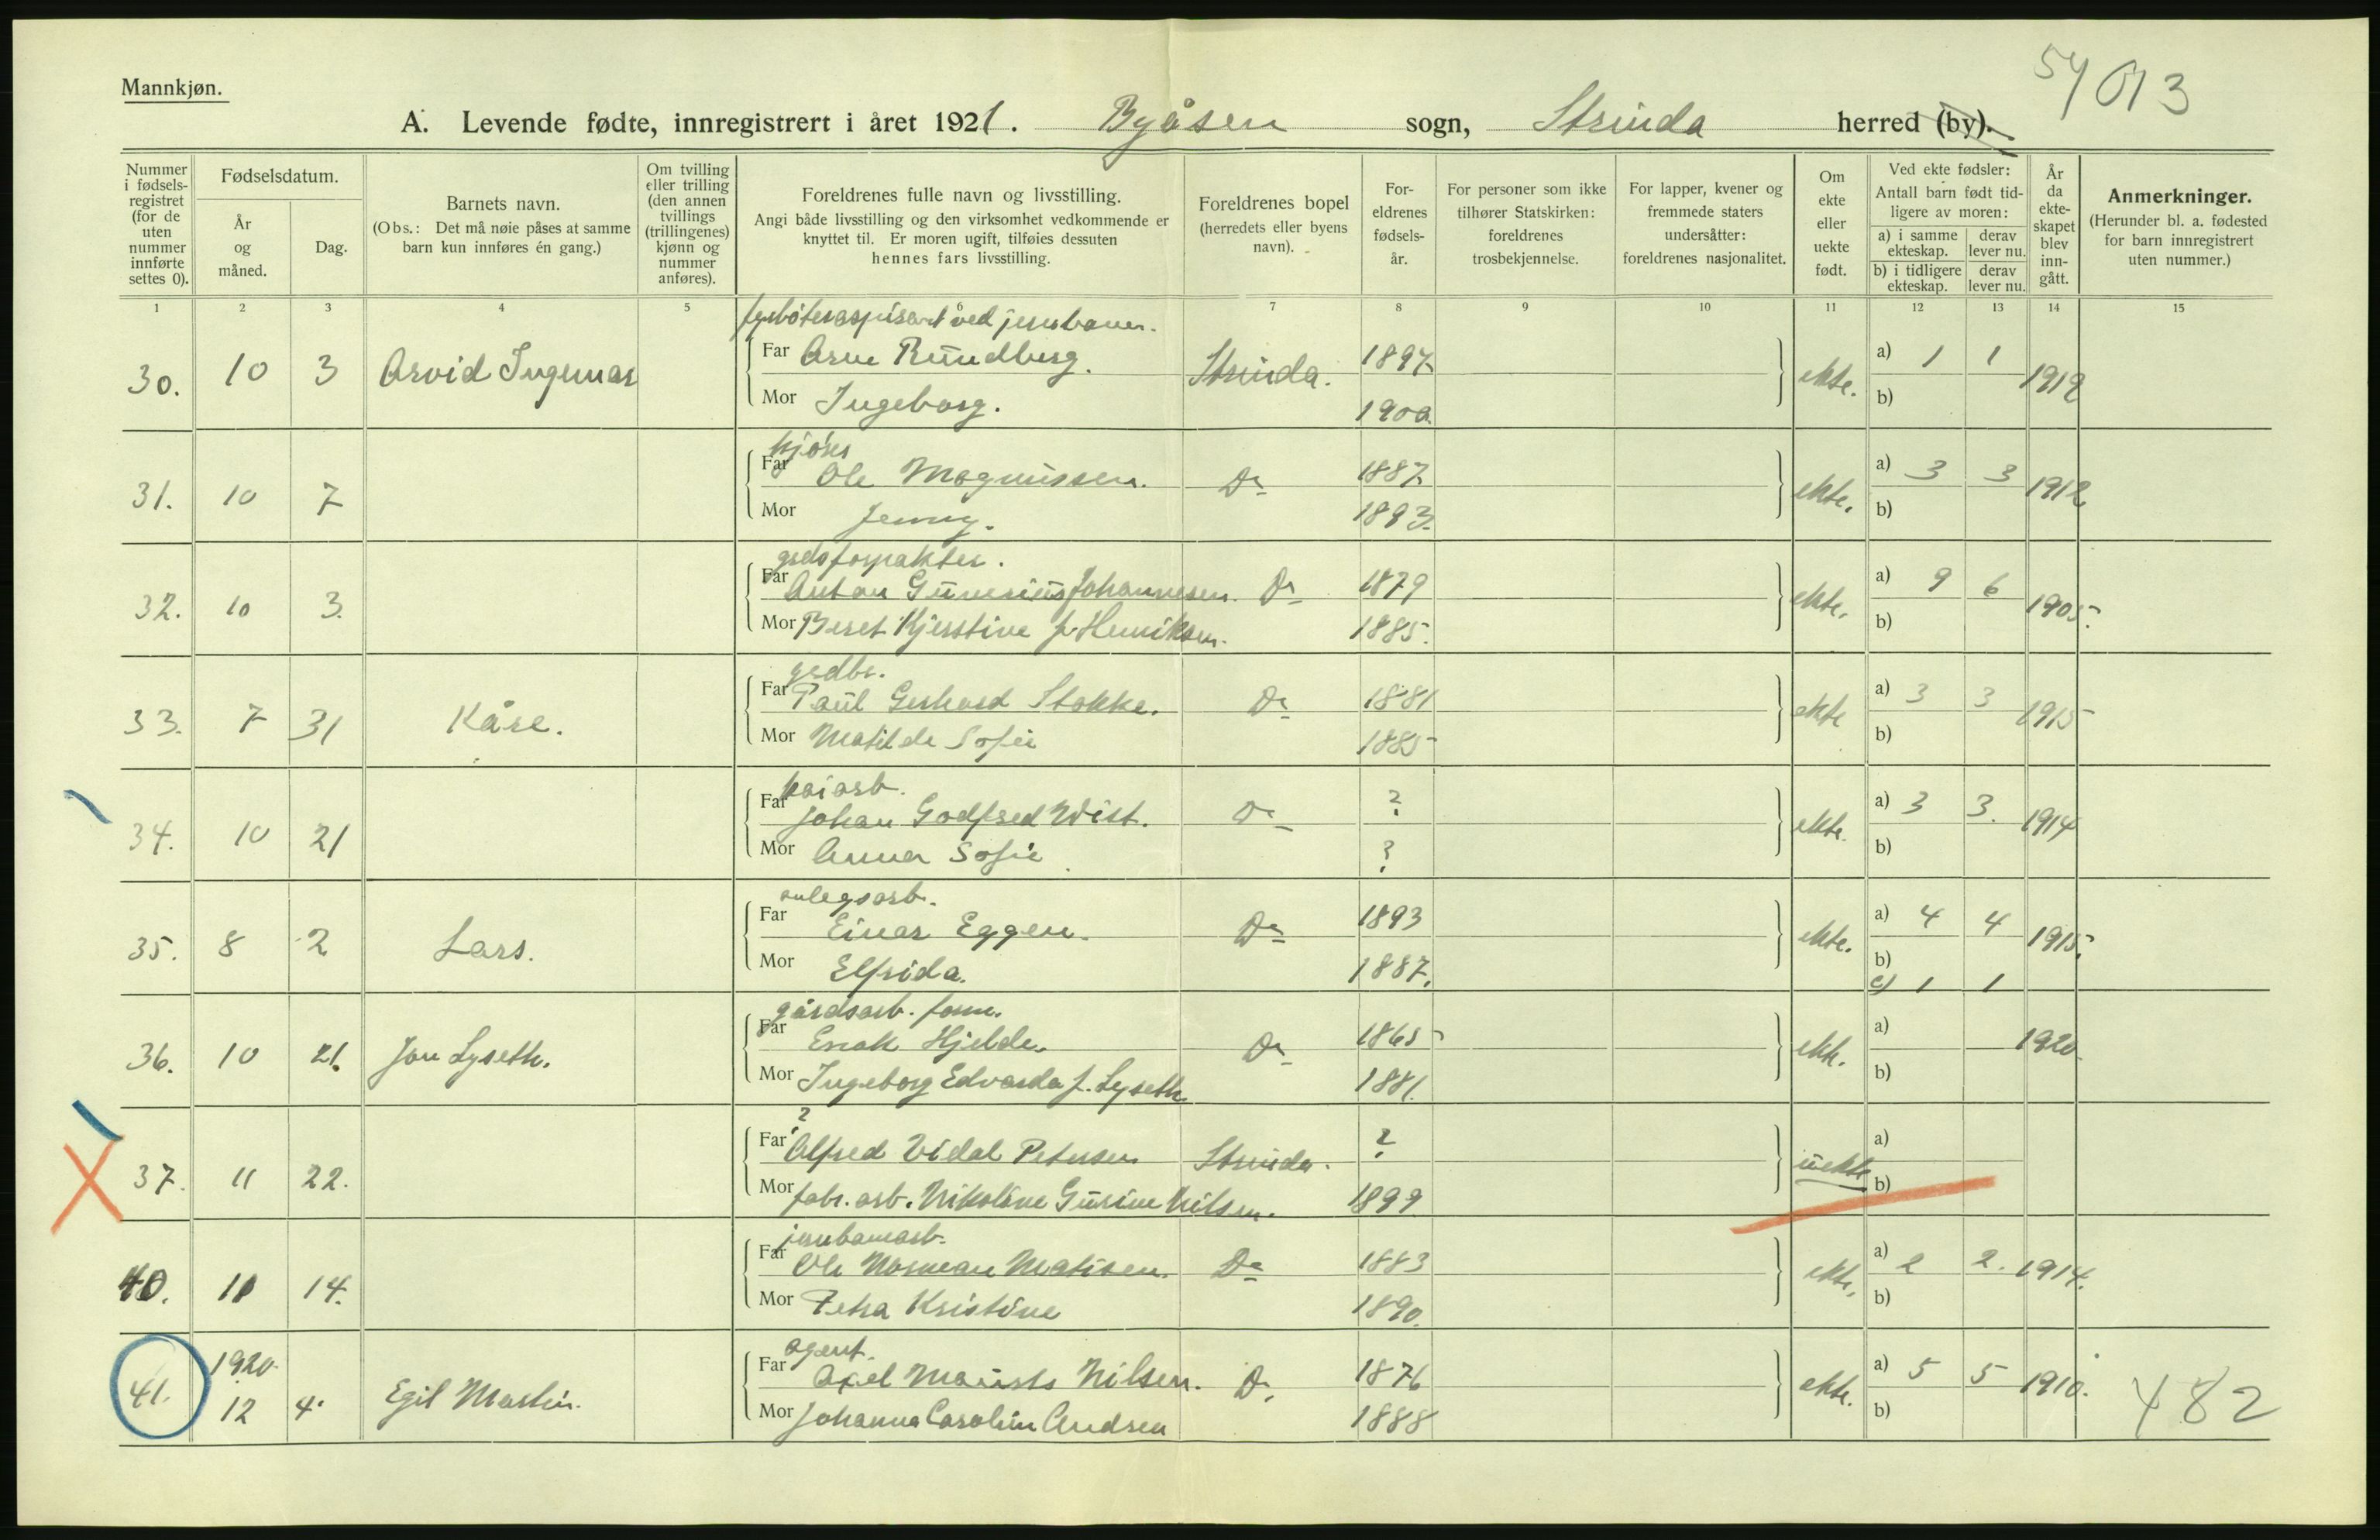 Mannkjøn.
54 013
A. Levende fødte, innregistrert i året 1921. Byåsen sogn, Strinda herred (by).
Nummer i fødsels-registret (for de uten nummer innførte settes 0).
Fødselsdatum.
År og måned.
Dag.
Barnets navn.
(Obs.: Det må nøie påses at samme barn kun innføres én gang.)
Om tvilling eller trilling (den annen tvillings (trillingenes) kjønn og nummer anføres).
Foreldrenes fulle navn og livsstilling.
Angi både livsstilling og den virksomhet vedkommende er knyttet til. Er moren ugift, tilføies dessuten hennes fars livsstilling.
Foreldrenes bopel (herredets eller byens navn).
For-eldrenes fødsels-år.
For personer som ikke tilhører Statskirken: foreldrenes trosbekjennelse.
For lapper, kvener og fremmede staters undersåtter: foreldrenes nasjonalitet.
Om ekte eller uekte født.
Ved ekte fødsler:
Antall barn født tid-ligere av moren:
a) i samme ekteskap.
derav lever nu.
b) i tidligere ekteskap.
derav lever nu.
År da ekte-skapet blev inn-gått.
Anmerkninger.
(Herunder bl. a. fødested for barn innregistrert uten nummer.)
1 2 3 4 5 6 7 8 9 10 11 12 13 14 15
fyrbøteraspirant ved jernbanen.
30. 10 3 Arvid Ingemar Far Arne Rundberg. Strinda. 1897. ekte. a) 1 1 1919
Mor Ingeborg. 1900. b)
kjører
31. 10 7 Far Ole Magnussen. Do 1887. ekte. a) 3 3 1912
Mor Jenny. 1893. b)
grdsforpakter.
32. 10 3. Far Anton Gunerius Johannesen. Do 1879 ekte. a) 9 6 1905.
Mor Beret Kjerstine f. Henriksen. 1885. b)
grdbr.
33. 7 31 Kåre. Far Paul Gerhard Stokke. Do 1881 ekte a) 3 3 1915
Mor Matilde Sofie 1885 b)
kaiarb.
34. 10 21 Far Johan Godfred Wist. Do ? ekte. a) 3 3. 1914
Mor Anna Sofie ? b)
anlegsarb.
35. 8 2 Lars. Far Einar Eggen. Do 1893 ekte. a) 4 4 1915.
Mor Elfrida. 1887. b)
c) 1 1
gårdsarb. form.
36. 10 21. Jon Lyseth. Far Enok Hjelde. Do 1865 ekte. a) 1920
Mor Ingeborg Edvarda f. Lyseth 1881. b)
?
37. 11 22. Far Alfred Vidal Petersen Strinda. ? uekte a)
Mor fabr. arb. Nikoline Gurine Nilsen. 1899 b)
jernbanearb.
40. 11 14. Far Ole Norman Matisen. Do 1883 ekte. a) 2 2. 1914.
Mor Petra Kristine 1890. b)
agent.
41. 1920 12 4. Egil Martin. Far Axel Maurits Nilsen. Do. 1876 ekte. a) 5 5 1910.
Mor Johanna Caroline Andsen 1888 b)
482